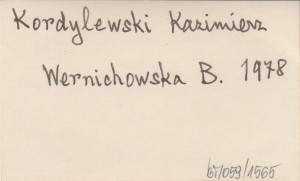 Kordylewski Kazimierz
Wernichowska B. 1978
bi/059/1565